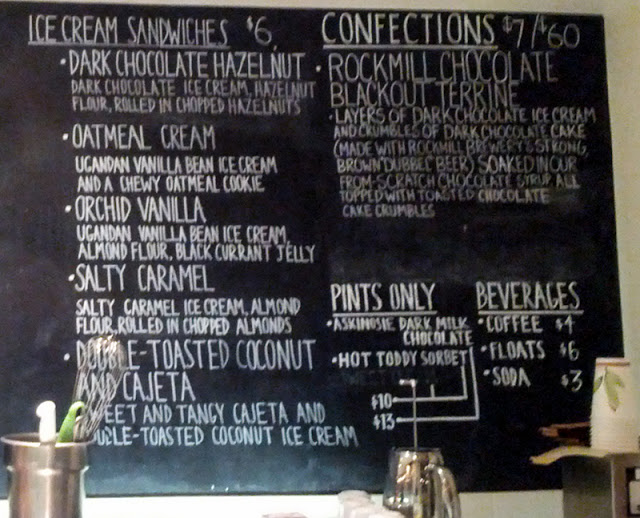 ICE CREAM SANDWICHES $6
• DARK CHOCOLATE HAZELNUT
DARK CHOCOLATE ICE CREAM, HAZELNUT
FLOUR, ROLLED IN CHOPPED HAZELNUTS
• OATMEAL CREAM
UGANDAN VANILLA BEAN ICE CREAM
AND A CHEWY OATMEAL COOKIE
• ORCHID VANILLA
UGANDAN VANILLA BEAN ICE CREAM,
ALMOND FLOUR, BLACK CURRANT JELLY
• SALTY CARAMEL
SALTY CARAMEL ICE CREAM, ALMOND
FLOUR, ROLLED IN CHOPPED ALMONDS
• DOUBLE-TOASTED COCONUT
AND CAJETA
SWEET AND TANGY CAJETA AND
DOUBLE-TOASTED COCONUT ICE CREAM
CONFECTIONS $7/$60
• ROCKMILL CHOCOLATE
BLACKOUT TERRINE
• LAYERS OF DARK CHOCOLATE ICE CREAM
AND CRUMBLES OF DARK CHOCOLATE CAKE
(MADE WITH ROCKMILL BREWERY'S STRONG,
BROWN "DUBBEL" BEER) SOAKED IN OUR
FROM-SCRATCH CHOCOLATE SYRUP ALL
TOPPED WITH TOASTED CHOCOLATE
CAKE CRUMBLES
PINTS ONLY
• ASKINOSIE DARK MILK
CHOCOLATE
• HOT TODDY SORBET
$10
$13
BEVERAGES
• COFFEE $4
• FLOATS $6
• SODA $3